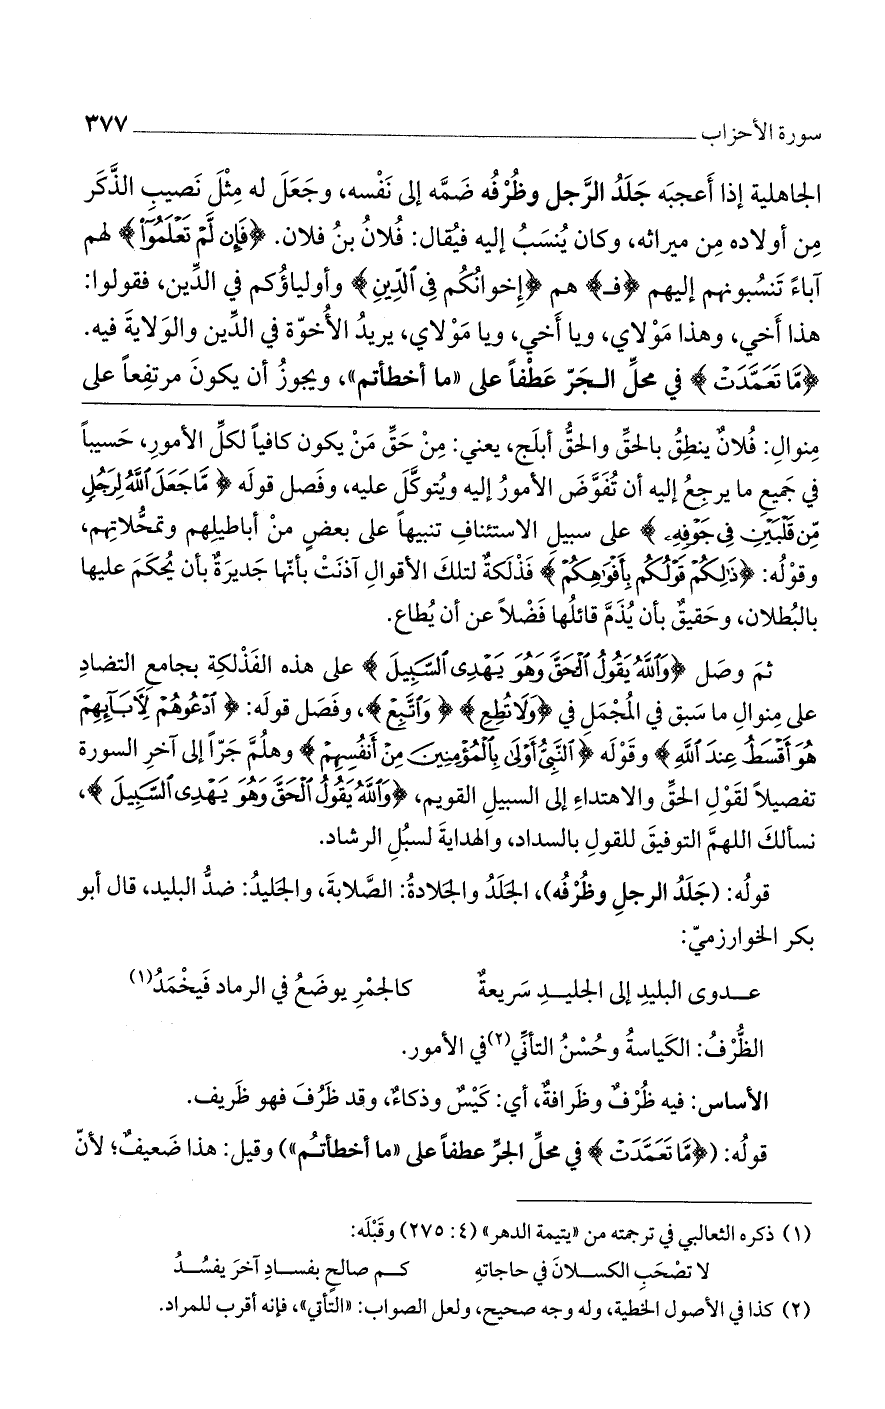 سورة الأحزاب ٣٧٧
الجاهلية إذا أَعجبَه جَلَدُ الرَّجل وظُرْفُه ضمَّه إلى نَفْسه، وجَعَلَ له مِثْلَ نَصيبِ الذَّكَر
مِن أولاده مِن ميراثه، وكان يُنسَبُ إليه فيُقال: فُلانُ بنُ فلان. ﴿فَإِن لَّمْ تَعْلَمُوٓا۟﴾ لهم
آباءً تَنسُبونهم إليهم ﴿فـ﴾ هم ﴿إِخوانُكُم فِى ٱلدِّينِ﴾ وأولياؤُكم في الدِّين، فقولوا:
هذا أَخي، وهذا مَوْلاي، ويا أَخي، ويا مَوْلاي، يريدُ الأُخوّة في الدِّين والوَلايةَ فيه.
﴿مَّا تَعَمَّدَتْ﴾ في محلِّ الـجَرّ عَطْفاً على «ما أخطأتم»، ويجوزُ أن يكونَ مرتفِعاً على
مِنوالِ: فُلانٌ ينطِقُ بالحقِّ والحقُّ أبلَج، يعني: مِنْ حَقِّ مَنْ يكون كافياً لكلِّ الأمورِ، حَسيباً
في جَميعِ ما يرجِعُ إليه أن تُفَوَّضَ الأمورُ إليه ويُتوكَّلَ عليه، وفَصل قولَه ﴿مَّا جَعَلَ ٱللَّهُ لِرَجُلٍ
مِّن قَلْبَيْنِ فِى جَوْفِهِۦ﴾ على سبيلِ الاستئنافِ تنبيهاً على بعضٍ منْ أباطيلِهم وتمحُّلاتِهم،
وقوْلُه: ﴿ذَٰلِكُمْ قَوْلُكُم بِأَفْوَٰهِكُمْ﴾ فَذْلَكةٌ لتلكَ الأقوالِ آذنَتْ بأنّها جَديرَةٌ بأن يُحكَمَ عليها
بالبُطلان، وحَقيقٌ بأن يُذَمَّ قائلُها فَضْلاً عن أن يُطاع.
ثمَ وصَل ﴿وَٱللَّهُ يَقُولُ ٱلْحَقَّ وَهُوَ يَهْدِى ٱلسَّبِيلَ﴾ على هذه الفَذْلكِة بجامعِ التضادِ
على مِنوالِ ما سَبق في المُجْمَلِ في ﴿وَلَا تُطِعِ﴾ ﴿وَٱتَّبِعْ﴾، وفَصَل قولَه: ﴿ٱدْعُوهُمْ لِءَابَآئِهِمْ
هُوَ أَقْسَطُ عِندَ ٱللَّهِ﴾ وقوْلَه ﴿ٱلنَّبِىُّ أَوْلَىٰ بِٱلْمُؤْمِنِينَ مِنْ أَنفُسِهِمْ﴾ وهلُمَّ جَرّاً إلى آخرِ السورة
تفصيلاً لقَوْلِ الحقِّ والاهتداءِ إلى السبيلِ القويم، ﴿وَٱللَّهُ يَقُولُ ٱلْحَقَّ وَهُوَ يَهْدِى ٱلسَّبِيلَ﴾،
نسألكَ اللهمَّ التوفيقَ للقولِ بالسداد، والهدايةَ لسبُلِ الرشاد.
قولُه: (جَلَدُ الرجلِ وظُرْفُه)، الجَلَدُ والجَلادةُ: الصَّلابة، والجَليدُ: ضدُّ البليد، قال أبو
بكر الخوارزميّ:
عـــدوى البليدِ إلى الجليــدِ سَريعةٌ كالجمْرِ يوضَعُ في الرماد فَيخْمَدُ(١)
الظُّرْفُ: الكَياسةُ وحُسْنُ التأنِّي(٢) في الأمور.
الأساس: فيه ظُرْفٌ وظَرافةٌ، أي: كَيْسٌ وذكاءٌ، وقد ظَرُفَ فهو ظَريف.
قولُه: (﴿مَّا تَعَمَّدَتْ﴾ في محلِّ الجرِّ عطفاً على «ما أخطأتُم») وقيل: هذا ضَعيفٌ؛ لأنّ
(١) ذكره الثعالبي في ترجمته من «يتيمة الدهر» (٤: ٢٧٥) وقَبْلَه:
لا تصْحَبِ الكســلانَ في حاجاتهِ كـــم صالحٍ بفســادِ آخرَ يفسُــدُ
(٢) كذا في الأصول الخطية، وله وجه صحيح، ولعل الصواب: «التأتي»، فإنه أقرب للمراد.